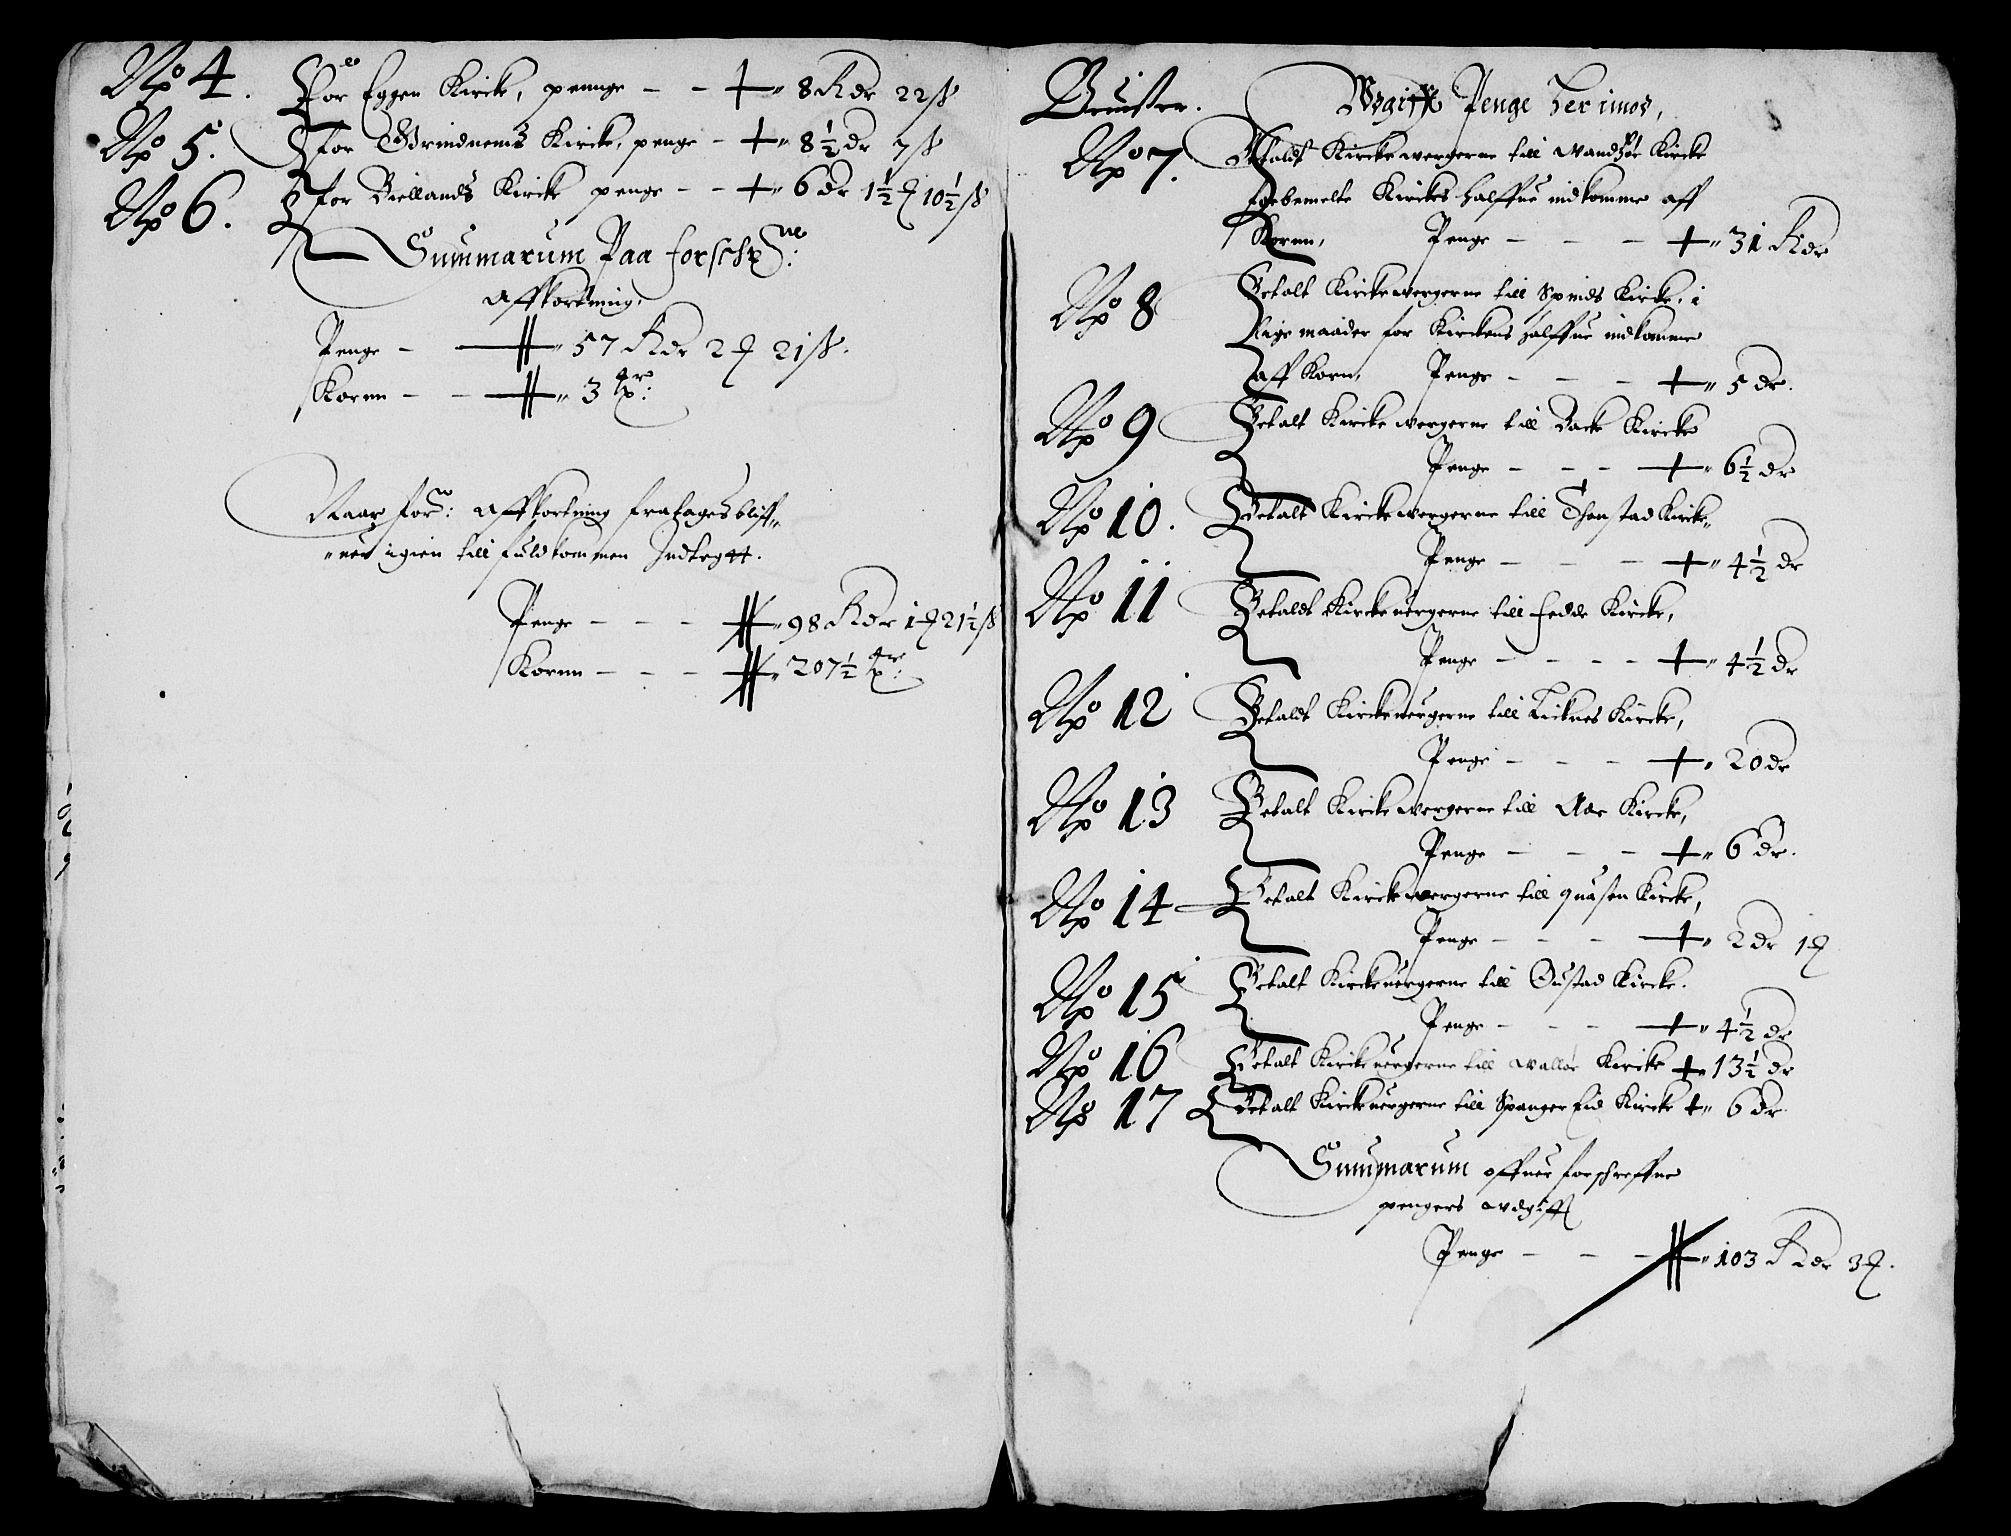 No 4. For Eggen Kircke, pennge — — 8 Rdr 22 ß
No 5. for Grindnems Kircke, penge — 8½ dr 7 ß
No 6. for Biellandz Kircke penge — — 6 dr 1½ 10½ ß
Summarum Paa forsch:ne
Affkortning.
Penge — 57 Rdr 2 21 ß.
Kornn — — 3
Naar for:ne Affkortning fratages bliff-
uer igien till fuldkommen Indtegtt.
Penge — — — 98 Rdr 1 21½ ß
Kornn — — — 207½
Beuiser. Wdgifft Penge her imod,
No 7. Betaldt Kirckewergerne till Wandsøe Kircke
bemelte Kirckes halffue indkomme aff
Kornn, Penge — — — 31 Rdr
No 8 Betalt Kirckewergerne till Spinds Kircke, i
lige maader for Kirckens halffue indkomme
aff Korn, Penge — — — 5 dr.
No 9 Betalt Kirckewergerne till Backe Kircke
Penge — — — 6½ dr
No 10. Betalt Kirckewergerne till Thonstad Kircke,
Penge — — — 4½ dr
No 11 Betaldt Kirckeuergerne till Fedde Kircke,
Penge — — — — 4½ dr
No 12 Betaldt Kirckeuergerne till Licknes Kircke,
Penge — — — 20 dr
No 13 Betalt Kirckewergerne till Aae Kircke,
Penge — — — 6 dr.
No 14 Betalt Kirckewergerne till quasen Kircke,
Penge — — — 2 dr 1
No 15 Betalt Kirckeuergerne till Oustad Kircke.
Penge — — — 4½ dr
No 16 Betalt Kirckeuergerne till Walløe Kircke 13½ dr
No 17 Betalt Kirckeuergerne till Spangereid Kircke 6 dr
Summarum offuer forschreffne
pengers wdgifft
Penge — — — 103 Rdr 3.